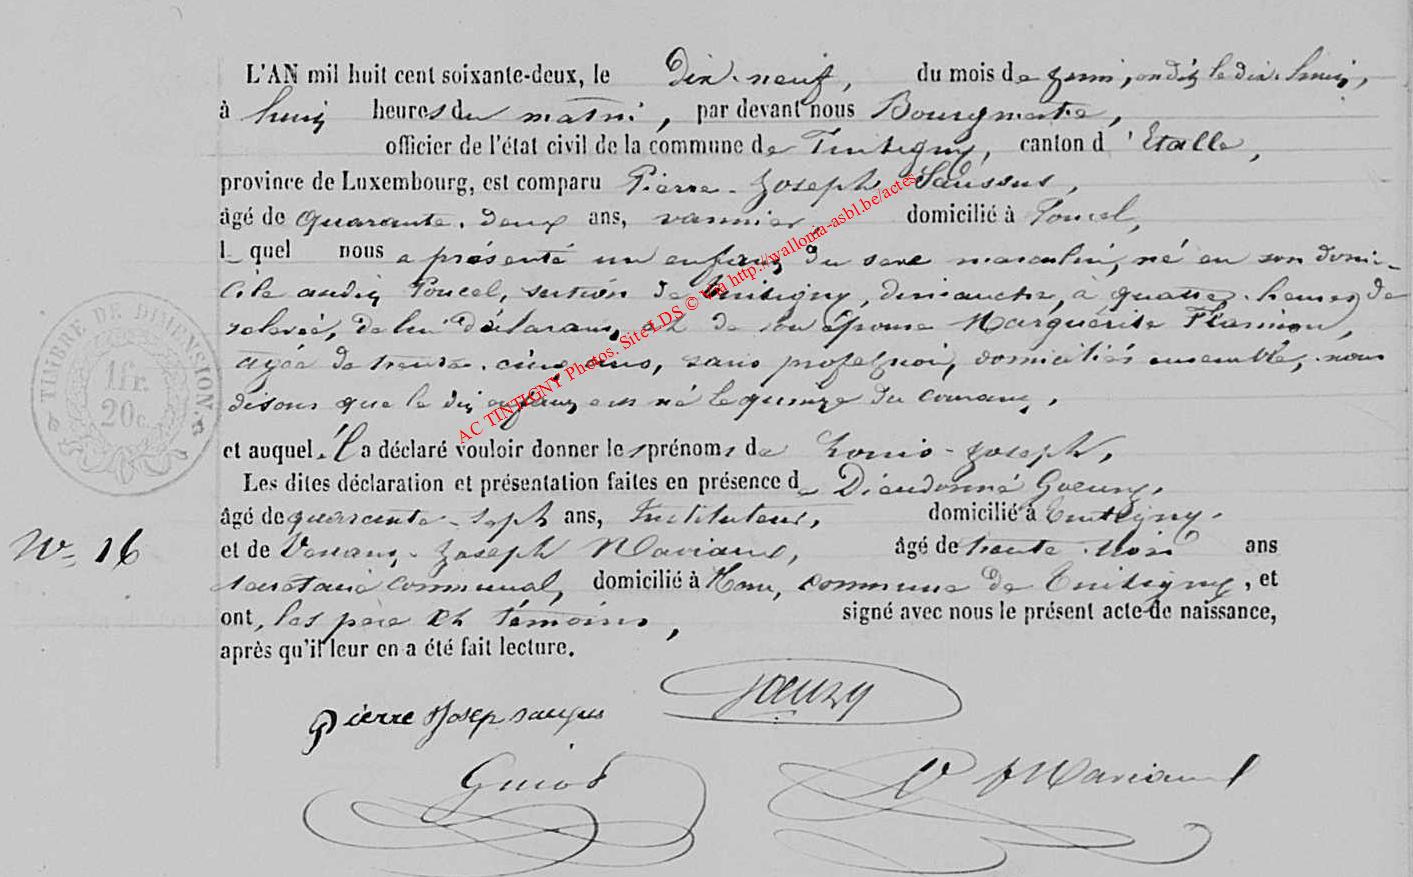 L'AN mil huit cent soixante-deux, le dix-neuf, du mois de juin, on dit le dix-huit,
à huit heures du matin, par devant nous Bourgmestre,
officier de l'état civil de la commune de Tintigny, canton d'Etalle,
province de Luxembourg, est comparu Pierre-Joseph Saussus,
âgé de quarante-deux ans, vannier, domicilié à Poncel,
l quel nous a présenté un enfant du sexe masculin, né en son domi-
cile audit Poncel, section de Tintigny, dimanche, à quatre heures de
relevée, de lui déclarant, et de son épouse Marguerite Flamion,
agée de trente-cinq ans, sans profession, domiciliés ensemble, nous
disons que le dit enfant est né le quinze du courant,
et auquel il a déclaré vouloir donner les prénoms de Louis-Joseph,
Les dites déclaration et présentation faites en présence de Dieudonné Goeury,
âgé de quarante-sept ans, Instituteur, domicilié à Tintigny,
et de Venant-Joseph Maviaux, âgé de trente-trois ans
N° 16
secrétaire communal, domicilié à Han, commune de Tintigny, et
ont, les père et témoins, signé avec nous le présent acte de naissance,
après qu'il leur en a été fait lecture.
Goeury
Pierre Josep sausus
Guiot
V J Maviaux
TIMBRE DE DIMENSION.
1fr.
20c.
AC TINTIGNY Photos. Site LDS © Via http://wallonia-asbl.be/actes